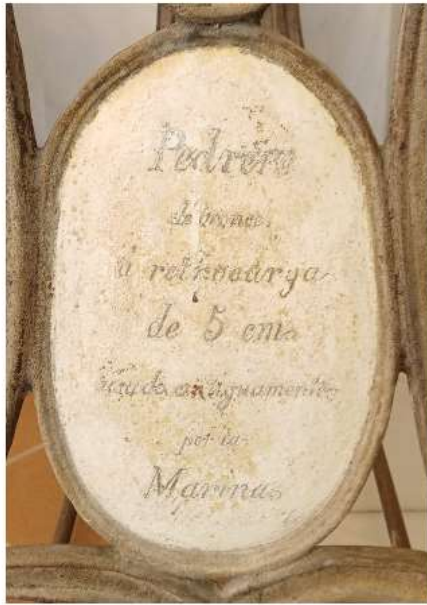 Pedrero
de bronce,
á retrocarga
de 5 cm.
usado antiguamente
por la
Marina.